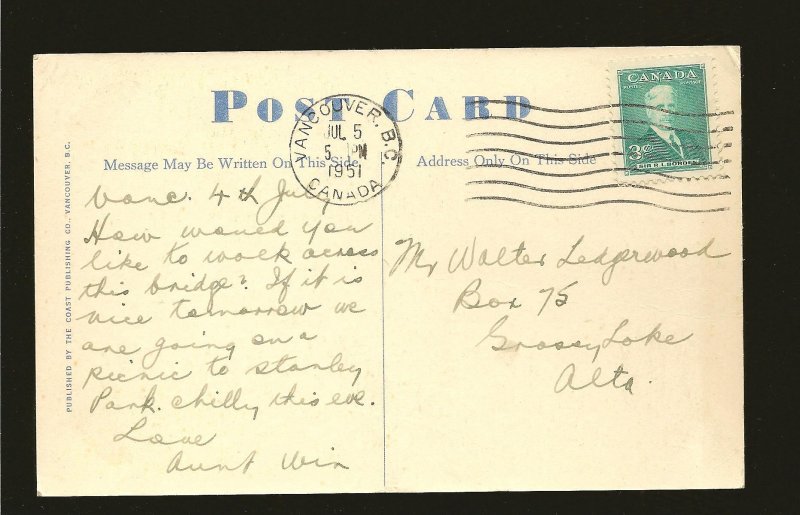 CANADA
POST CARD
VANCOUVER, B.C.
JUL 5
5 PM
1951
CANADA
3c
SIR R.L. BORDEN
Message May Be Written On This Side
Address Only On This Side
PUBLISHED BY THE COAST PUBLISHING CO., VANCOUVER, B.C.
Vanc. 4th July
How would you
like to walk across
this bridge? If it is
nice tomorrow we
are going on a
picnic to Stanley
Park. Chilly this eve.
Love
Aunt Win
Mr Walter Ledgerwood
Box 75
Grassy Lake
Alta.